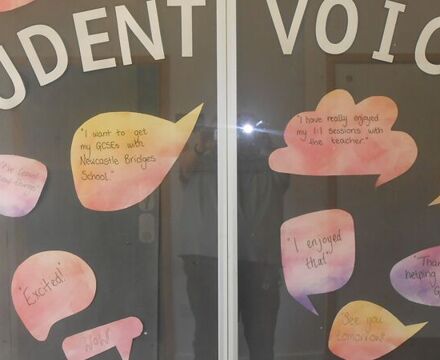 UDENT VOIC
"I want to get
my GCSEs with
Newcastle Bridges
School."
"I have really enjoyed
my 1:1 sessions with
the teacher."
"I've learnt
"I enjoyed
that"
"Excited!"
"Than
helping
G
"See you
tomorrow"
"Wow"